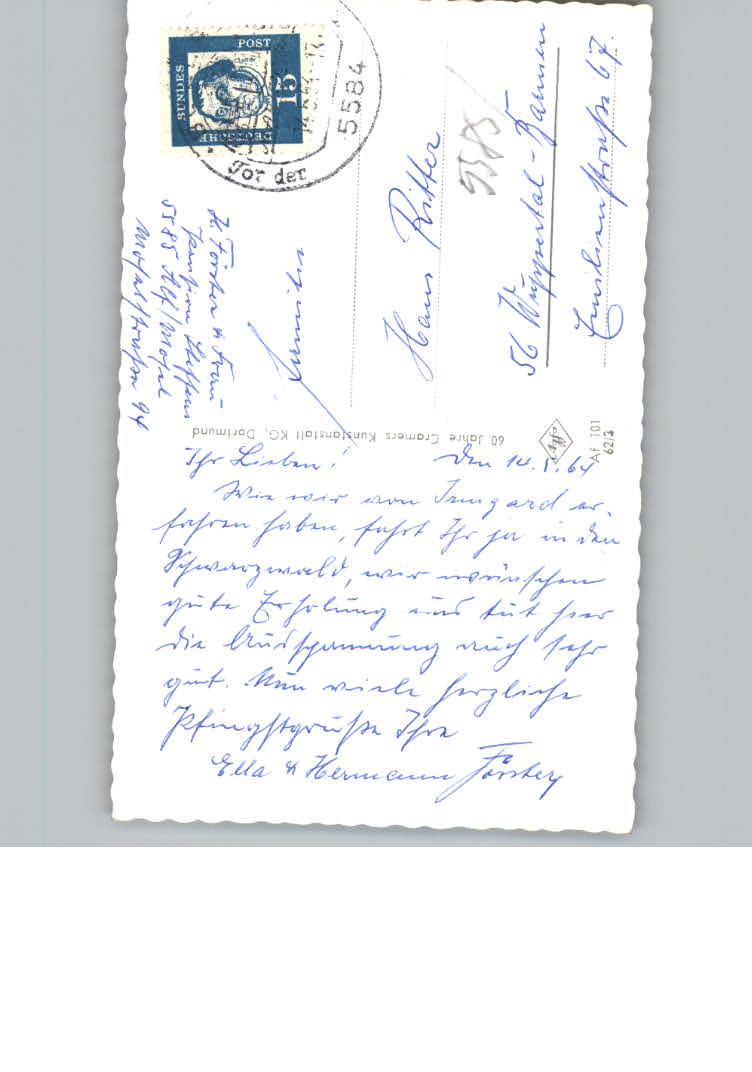 DEUTSCHE
BUNDES
POST
15
5584
Tor der
5585
H. Förster & Frau
Pension Steffens
5585 Alf/Mosel
Moselstraße 94
Familie
Hans Ritter
56 Wuppertal-Barmen
Emilienstraße 67.
60 Jahre Cramers Kunstanstalt KG, Dortmund
Af 101
62/3
Ihr Lieben! Den 14.5.64
Wie wir von Irmgard er-
fahren haben, fahrt Ihr ja in den
Schwarzwald, wir wünschen
gute Erholung uns tut hier
die Ausspannung auch sehr
gut. Nun viele herzliche
Pfingstgrüße Ihre
Ella & Hermann Förster